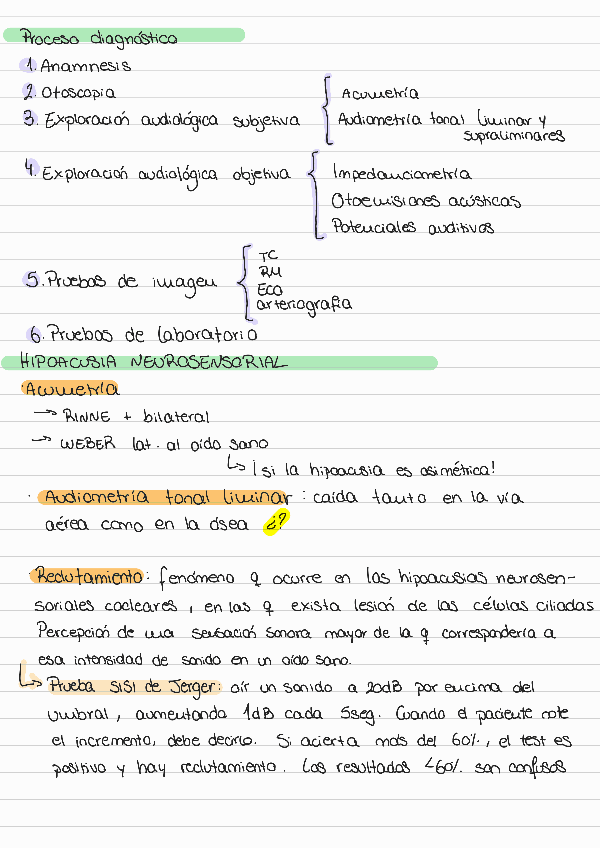 Proceso diagnóstico
1. Anamnesis
2. Otoscopia
3. Exploración audiológica subjetiva
Acumetría
Audiometría tonal liminar y
supraliminares
4. Exploración audiológica objetiva
Impedanciometría
Otoemisiones acústicas
Potenciales auditivos
5. Pruebas de imagen
TC
RM
ECO
arteriografía
6. Pruebas de laboratorio
HIPOACUSIA NEUROSENSORIAL
Acumetría
→ RINNE + bilateral
→ WEBER lat. al oído sano
↳ ¡si la hipoacusia es asimétrica!
· Audiometría tonal liminar: caída tanto en la vía
aérea como en la ósea ¿?
· Reclutamiento: fenómeno q ocurre en las hipoacusias neurosen-
soriales cocleares, en las q exista lesión de las células ciliadas
Percepción de una sensación sonora mayor de la q correspondería a
esa intensidad de sonido en un oído sano.
↳ Prueba SISI de Jerger: oír un sonido a 20dB por encima del
umbral, aumentando 1dB cada 5seg. Cuando el paciente note
el incremento, debe decirlo. Si acierta más del 60%, el test es
positivo y hay reclutamiento. Los resultados <60% son confusos